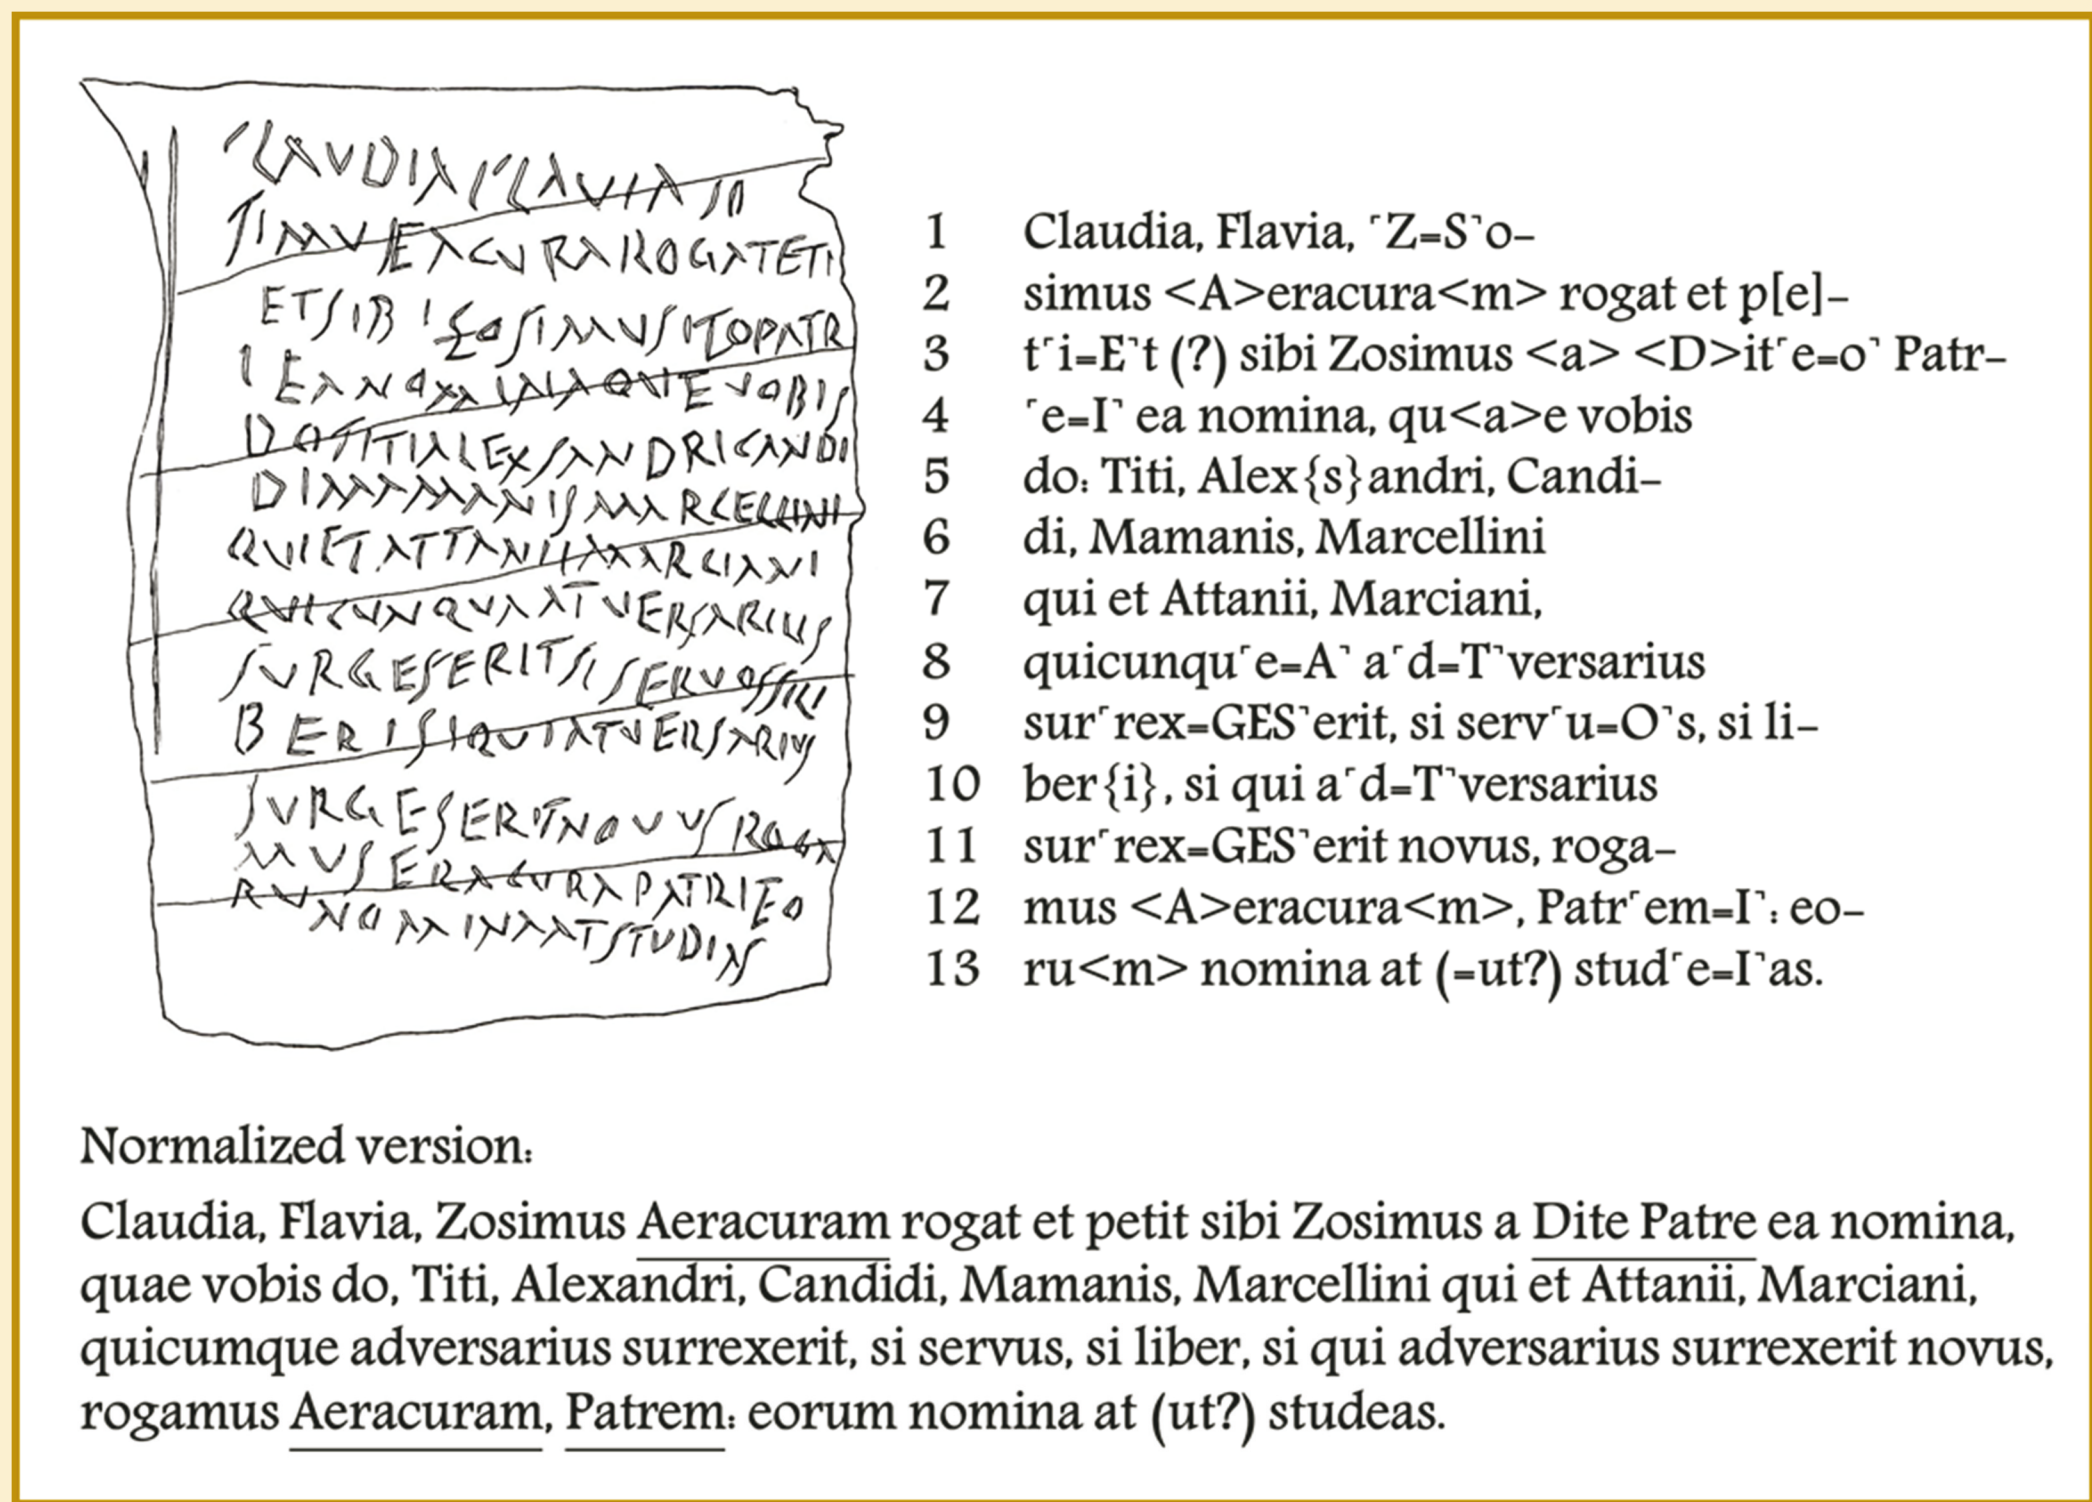 CLAVDIAFLAVIASO
SIMVSERACVRAROGATETP
ETSIBIZOSIMVSITOPATR
IEANOMINAQVEVOBIS
DOTITIALEXSANDRICANDI
DIMAMANISMARCELLINI
QVIETATTANIIMARCIANI
QVICVNQVAATVERSARIVS
SVRGESERITSISERVOSSILI
BERISIQVIATVERSARIVS
SVRGESERITNOVVSROGA
MVSERACVRAPATRIEO
RVNOMINAATSTVDIAS
1 Claudia, Flavia, ⌜Z=S⌝o–
2 simus <A>eracura<m> rogat et p[e]–
3 t⌜i=E⌝t (?) sibi Zosimus <a> <D>it⌜e=o⌝ Patr–
4 ⌜e=I⌝ ea nomina, qu<a>e vobis
5 do: Titi, Alex{s}andri, Candi–
6 di, Mamanis, Marcellini
7 qui et Attanii, Marciani,
8 quicunqu⌜e=A⌝ a⌜d=T⌝versarius
9 sur⌜rex=GES⌝erit, si serv⌜u=O⌝s, si li–
10 ber{i}, si qui a⌜d=T⌝versarius
11 sur⌜rex=GES⌝erit novus, roga–
12 mus <A>eracura<m>, Patr⌜em=I⌝: eo–
13 ru<m> nomina at (=ut?) stud⌜e=I⌝as.
Normalized version:
Claudia, Flavia, Zosimus Aeracuram rogat et petit sibi Zosimus a Dite Patre ea nomina,
quae vobis do, Titi, Alexandri, Candidi, Mamanis, Marcellini qui et Attanii, Marciani,
quicumque adversarius surrexerit, si servus, si liber, si qui adversarius surrexerit novus,
rogamus Aeracuram, Patrem: eorum nomina at (ut?) studeas.